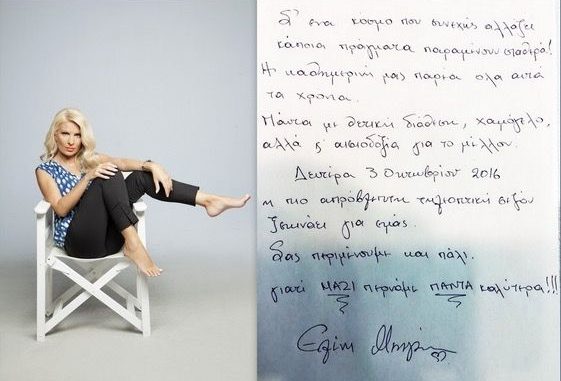 Σ' ένα κόσμο που συνεχώς αλλάζει
κάποια πράγματα παραμένουν σταθερά!
Η καθημερινή μας παρέα όλα αυτά
τα χρόνια.
Πάντα με θετική διάθεση, χαμόγελο,
αλλά κ' αισιοδοξία για το μέλλον.
Δευτέρα 3 Οκτωβρίου 2016
η πιο απρόβλεπτη τηλεοπτική σεζόν
ξεκινάει για εμάς.
Σας περιμένουμε και πάλι
γιατί ΜΑΖΙ περνάμε ΠΑΝΤΑ καλύτερα!!!
Ελένη